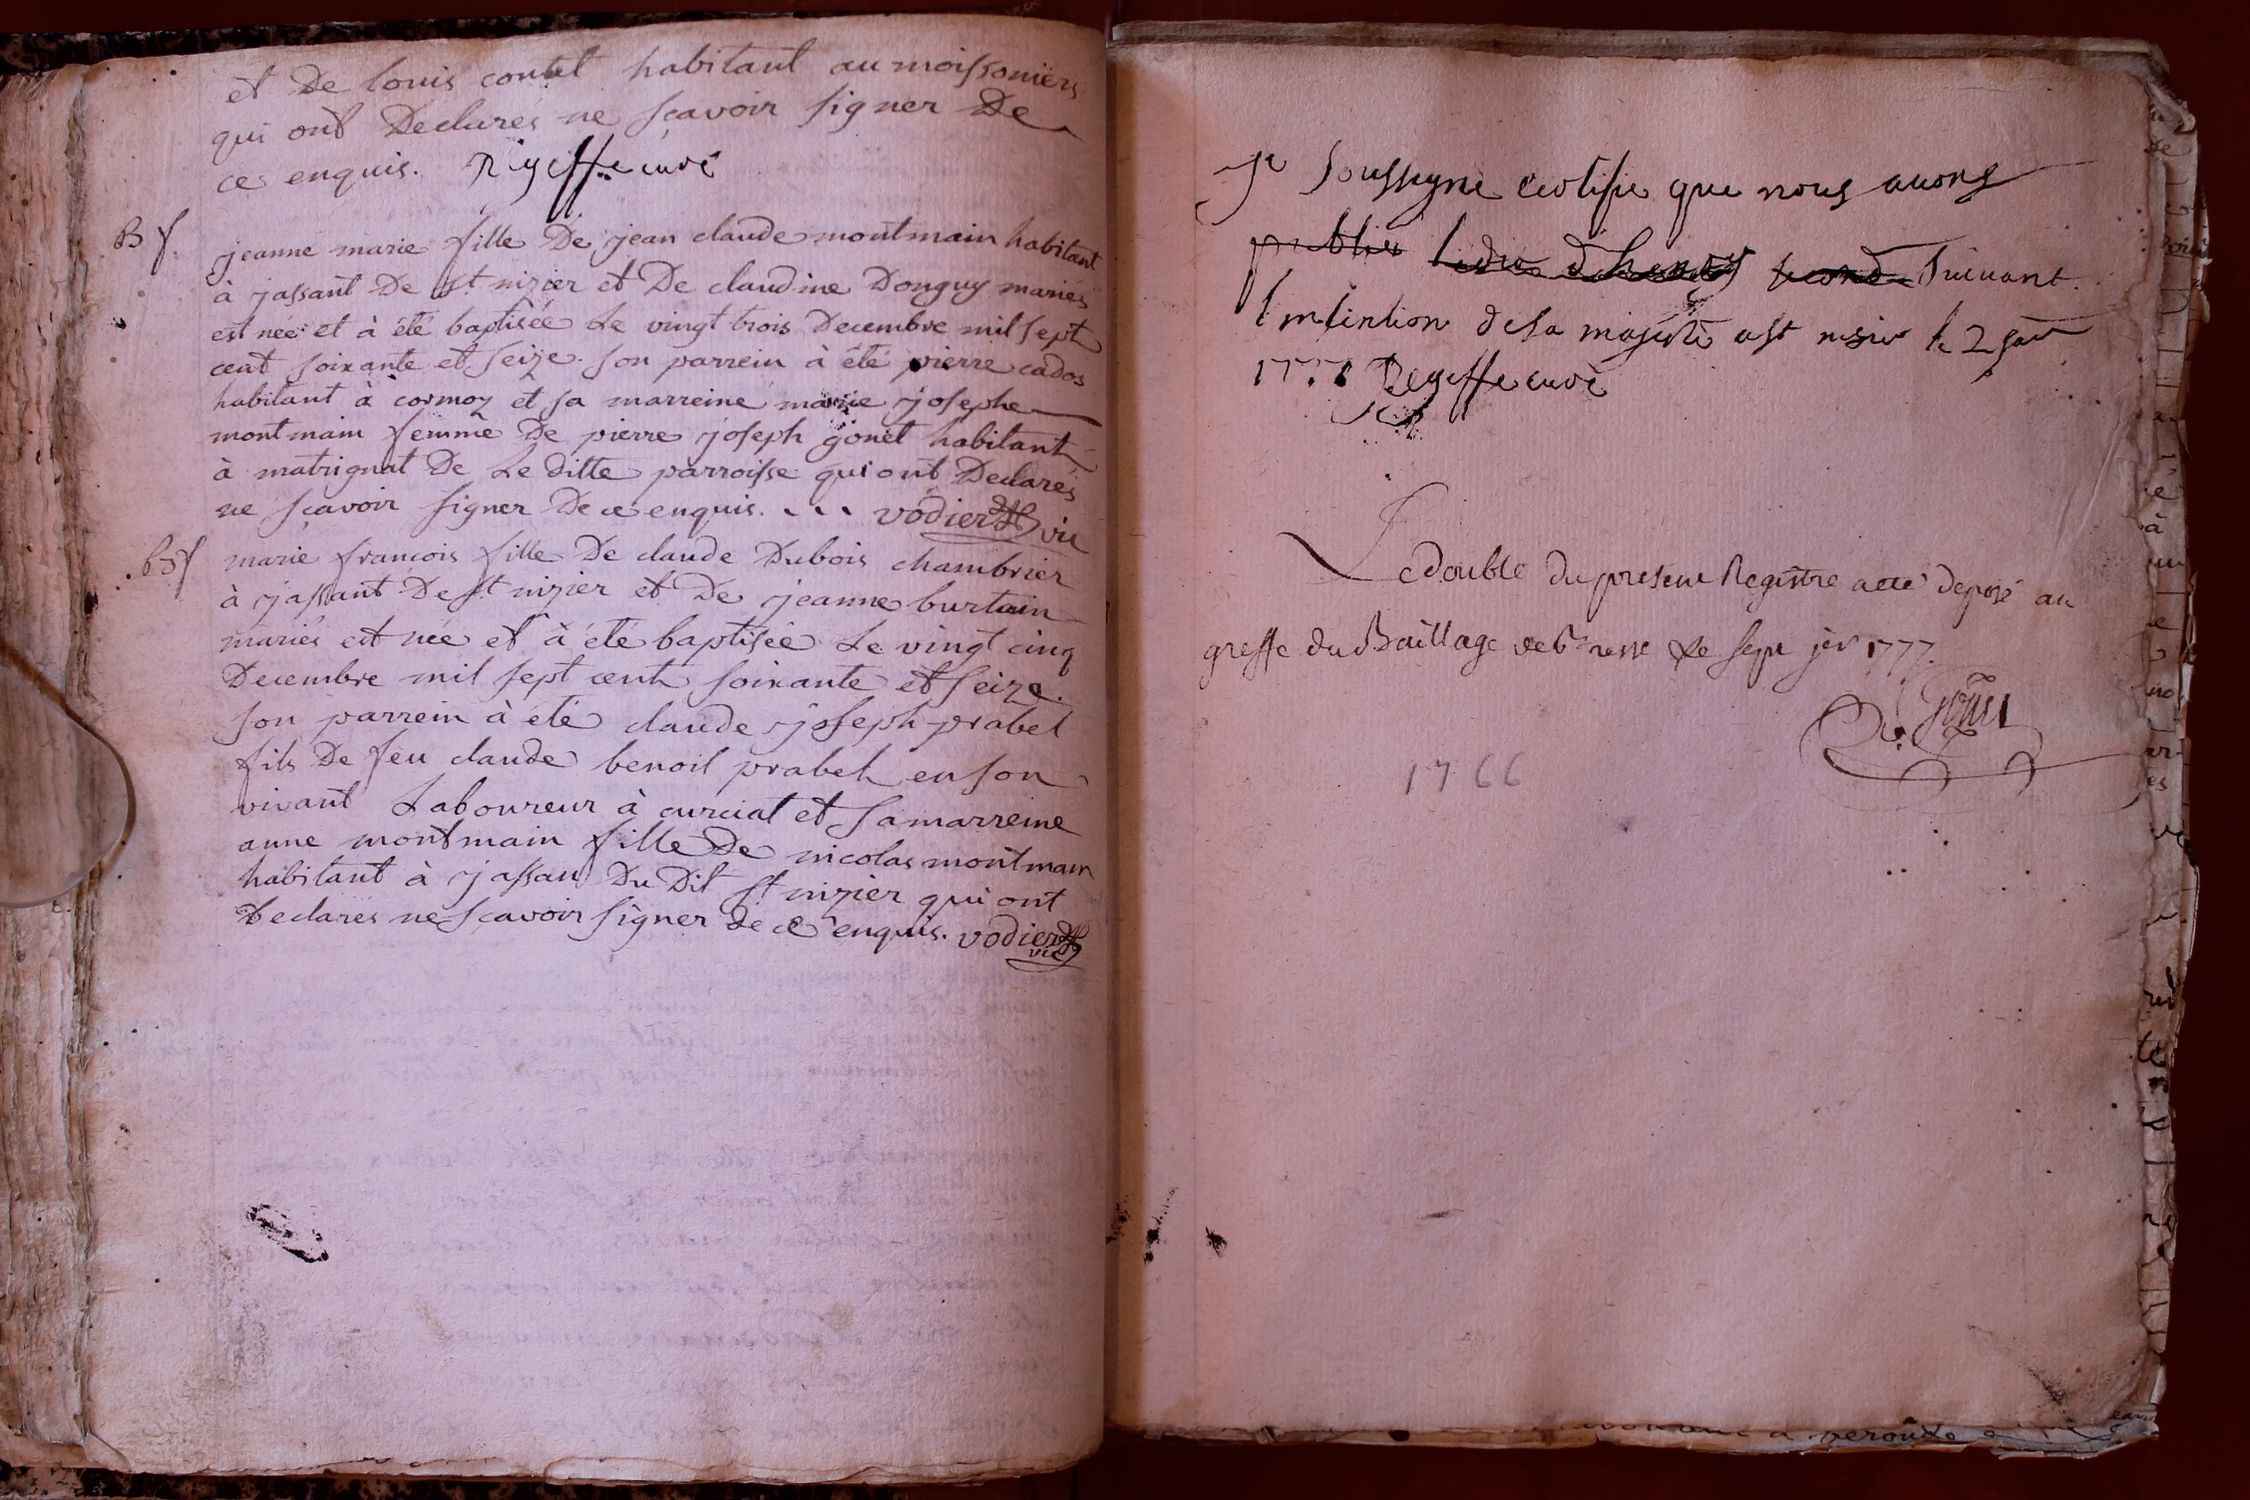 et De louis contet habitant au moissoniers
qui ont Declarés ne scavoir signer De
ces enquis. Reyffe curé
B f.
jeanne marie fille De jean claude montmain habitant
à jassant De st nizier et De claudine Donguy mariés
est née et à été baptisée Le vingt trois Decembre mil sept
cent soixante et seize. son parrein à été pierre cados
habitant à cormoz et sa marreine marie josephe
montmain femme De pierre joseph gonet habitant
à matrignat De Le ditte parroisse qui ont Declarés
ne scavoir signer De ce enquis. . . . vodier vic
b f
marie francois fille De claude Dubois chambrier
à jassant De st nizier et De jeanne burtain
mariés est née et à été baptisée Le vingt cinq
Decembre mil sept cent soixante et seize.
son parrein à été claude joseph prabel
fils De feu claude benoit prabel en son
vivant Laboureur à curciat et sa marreine
anne montmain fille De nicolas montmain
habitant à jassan Du Dit st nizier qui ont
Declarés ne scavoir signer de ce enquis. vodier
vic
Je soussigné certifie que nous avons
publier ledit d'henry second suivant
l'intention de sa majesté a st nizier le 2 janv
1777 Reyffe curé
Le double du present Registre a eté deposé au
greffe du Baillage de Bresse Le sept jer 1777.
1766